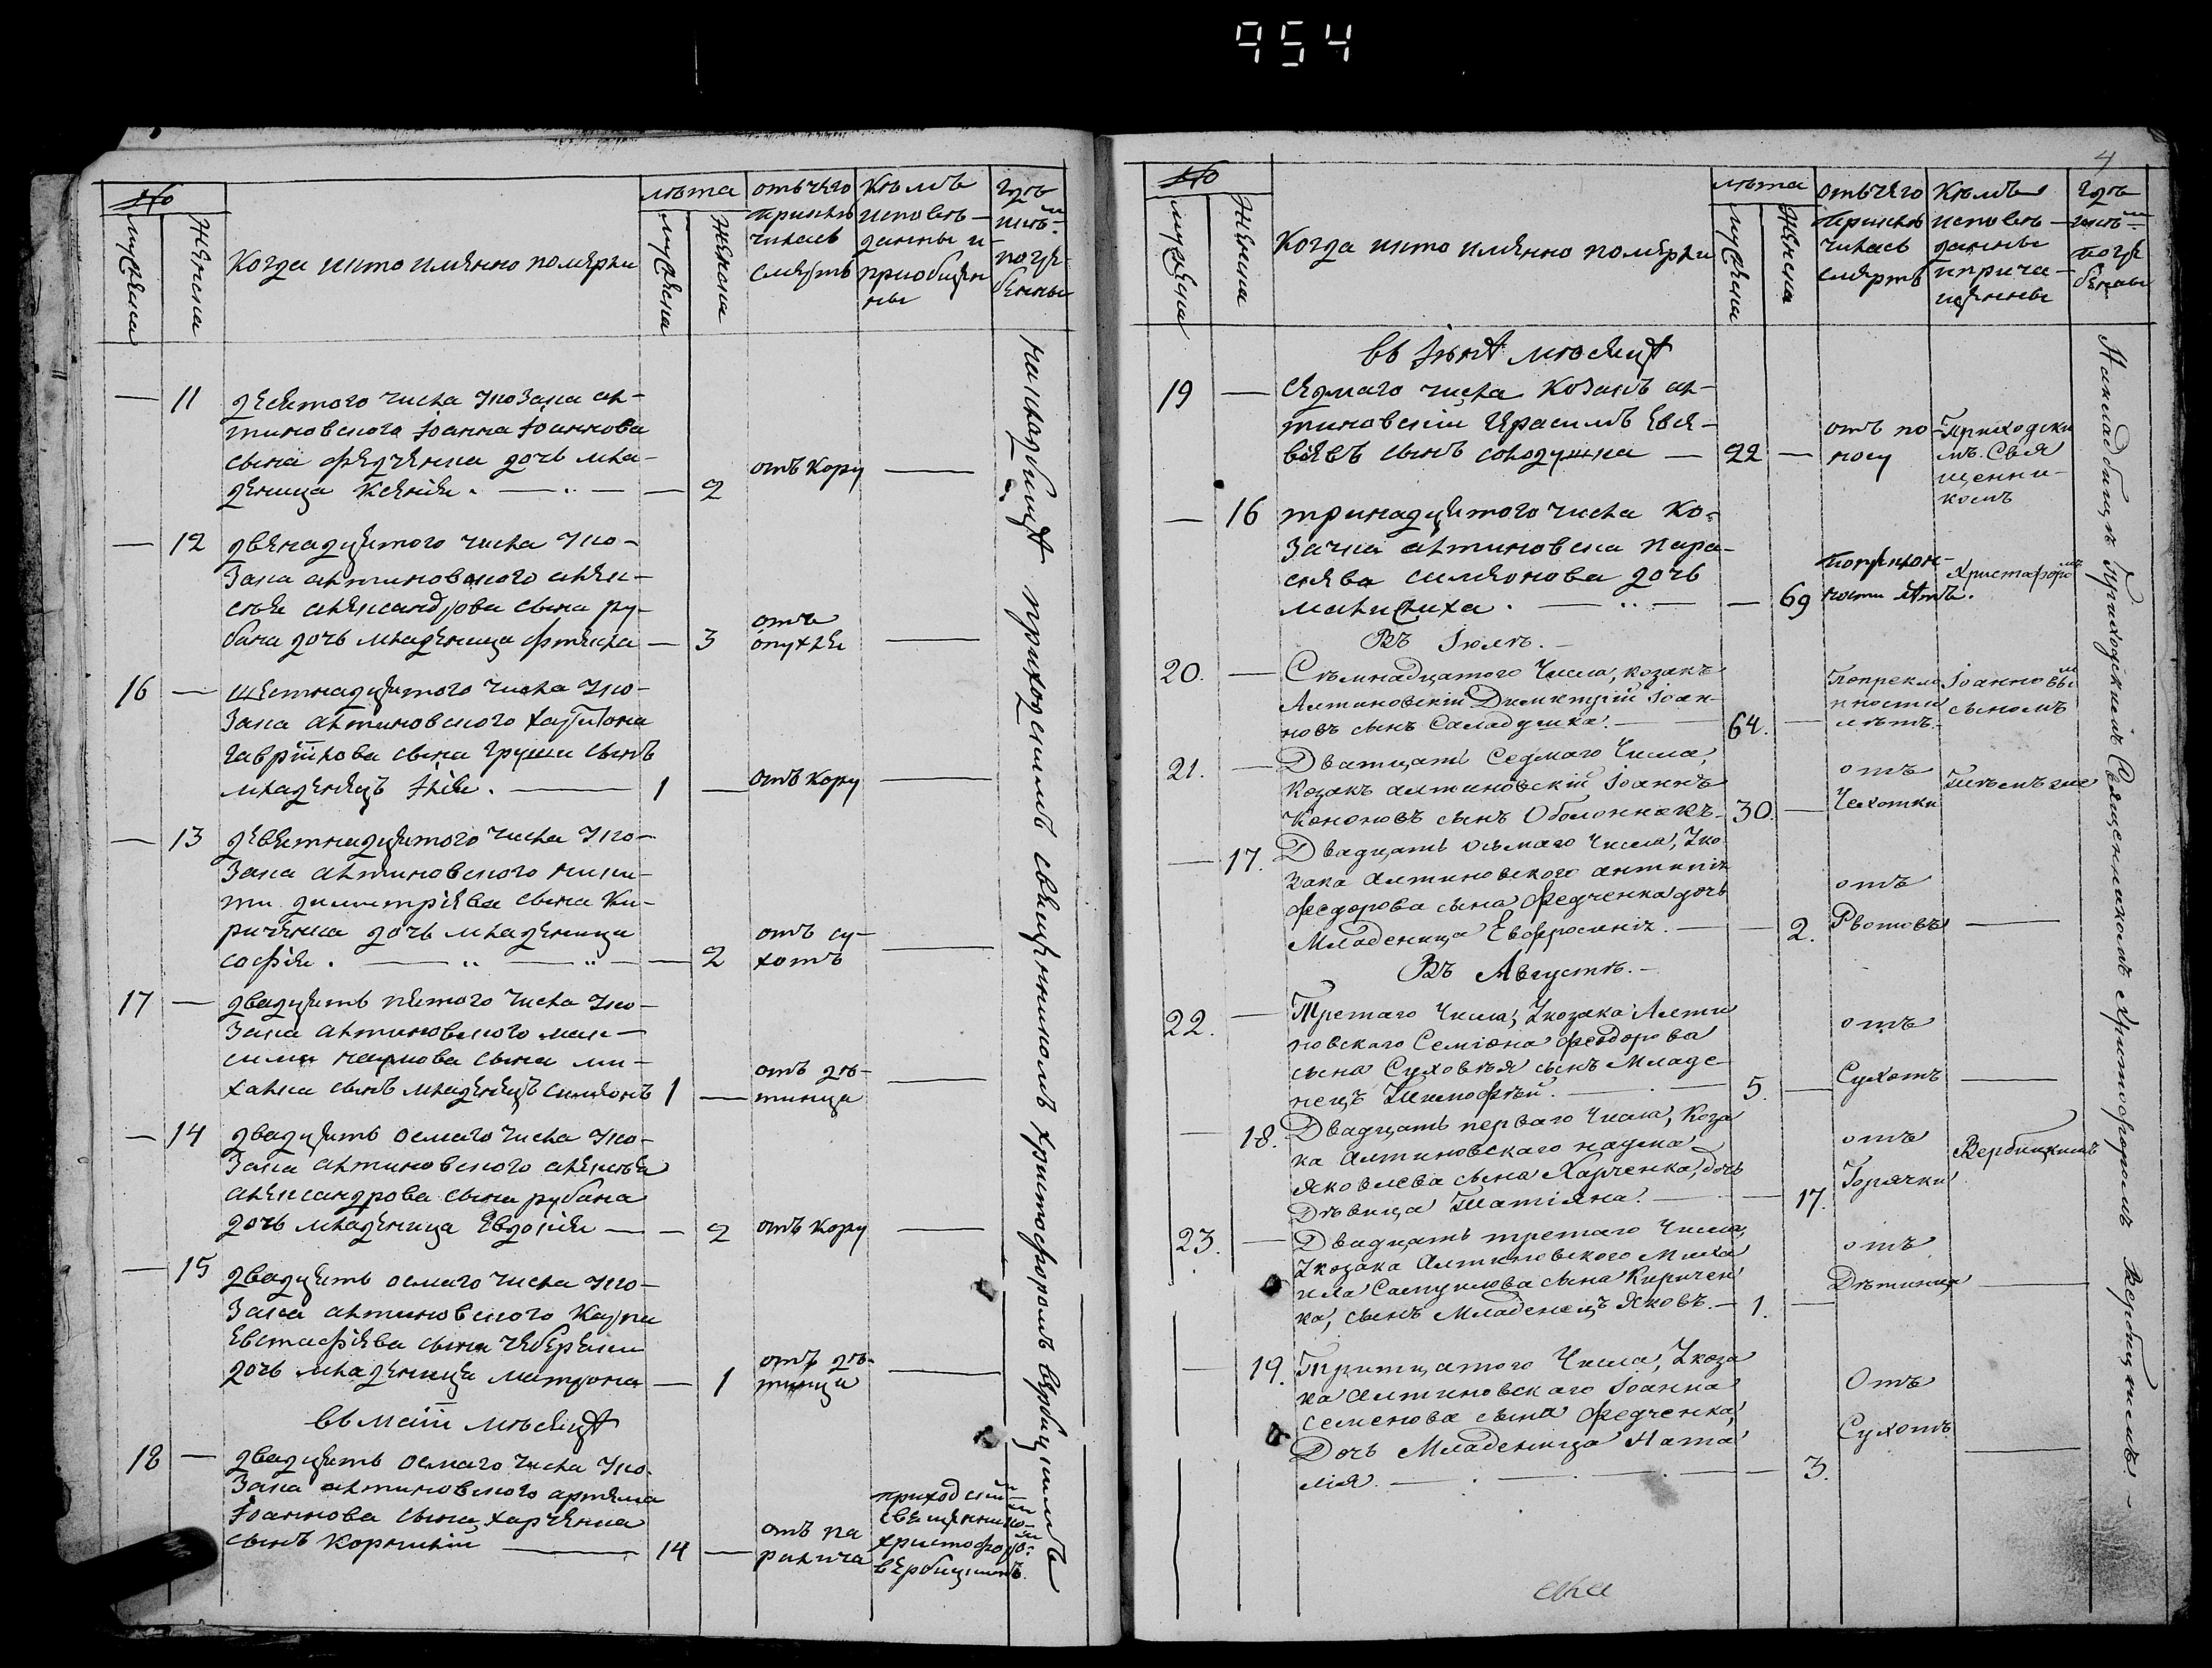 954
№
мужеска
женска
Когда и кто именно померли
лѣта
мужеска
женска
отъ чего
приклю
чилась
смерть
Кѣмъ
исповѣ-
данны и
приобщен
ны
гдѣ
погре-
бенны
— 11 десятого числа у козака ал-
тиновского Іоанна Іоаннова
сына федченка дочь мла-
деница Ксенія. — 2 отъ кору —
— 12 двенадцятого числа у ко-
зака алтиновского алек-
сѣя александрова сына ру-
бана дочь младеница фтекла — 3 отъ опухлы —
16 — шестнадцятого числа у ко-
зака алтиновского харитона
гаврійлова сына груши сынъ
младенецъ Ілія. — 1 — отъ кору —
— 13 девятнадцятого числа у ко-
зака алтиновского ники-
ти димитріева сына Ки-
риченка дочь младеница
софія. — — 2 отъ сухотъ —
17 — двадцять пятого числа у ко-
зака алтиновского мак-
сима наумова сына ми-
халка сынъ младенецъ симеонъ 1 — отъ дѣтинца —
— 14 двадцять осмаго числа у ко-
зака алтиновского алексѣя
александрова сына рубана
дочь младеница Евдокія — — 2 отъ кору —
— 15 двадцять осмаго числа у ко-
зака алтиновского Карпа
Евстафіева сына чеберяки
дочь младеница матрона — 1 отъ дѣтинца —
въ маіи мѣсяцѣ
18 — двадцять осмаго числа у ко-
зака алтиновского артема
Іоаннова сына харченка
сынъ Корнилій — 14 — отъ паралича
приходскимъ
священнико-
христофоро-
вербицкимъ
на кладбищѣ приходскимъ священникомъ христофоромъ вербицкимъ
4
№
мужеска
женска
Когда и кто именно померли
лѣта
мужеска
женска
отъ чего
приклю
чилась
смерть
Кѣмъ
исповѣ-
данны
и прича-
щенны
гдѣ
погре
бенны
въ Іюнѣ мѣсяцѣ
19 — седмаго числа козакъ ал-
тиновскій Герасимъ Евсе-
віевъ сынъ солодушка — 22 — отъ поносу
Приходски
мъ. Свя
щенни-
комъ
— 16 тринадцятого числа ко-
зачка алтиновска пара-
скева симеонова дочь
малишиха. — — 69 по преклон-
ности лѣтъ.
Христофоромъ
Въ Іюлѣ. —
20. — Сѣмнадцатого Числа, козакъ
Алтиновскій Димитрій Іоан-
новъ сынъ Саладушка. — 64. — По прекло
нности
лѣтъ.
Іоанновымъ
сыномъ
21. — Дватцать Седмаго Числа,
козакъ алтиновскій Іоаннъ
Кононовъ сынъ Оболоннакъ — 30. — отъ
Чахотки
Тѣмъ же
— 17. Двадцать осьмаго Числа, у ко
зака алтиновского антипія
Федорова сына Федченка дочь
Младеница Евфросинія. — — 2. отъ
Рвотовъ —
Въ Августѣ. —
22. — Третаго Числа, у козака Алти
новскаго Семіона Феодорова
сына Суховѣя сынъ Младе
нецъ Тимофѣй. — 5. — отъ
Сухотъ —
— 18. Двадцать перваго Числа, коза
ка Алтиновскаго наума
Яковлева сына Харченка, дочь
Дѣвица Татіяна. — — 17. отъ
Горячки
Вербицкимъ
23. — Двадцать третаго Числа,
у козака Алтиновского Миха
ила Самуилова сына Киричен
ка, сынъ Младенецъ Яковъ. — 1. — отъ
Дѣтинца —
— 19. Тритцатого Числа, у коза
ка Алтиновскаго Іоанна
Семенова сына Федченка,
Дочь Младеница Ната
лія. — — 3. Отъ
Сухотъ —
На кладбищѣ Приходскимъ Священникомъ Христофоромъ Вербицкимъ. —